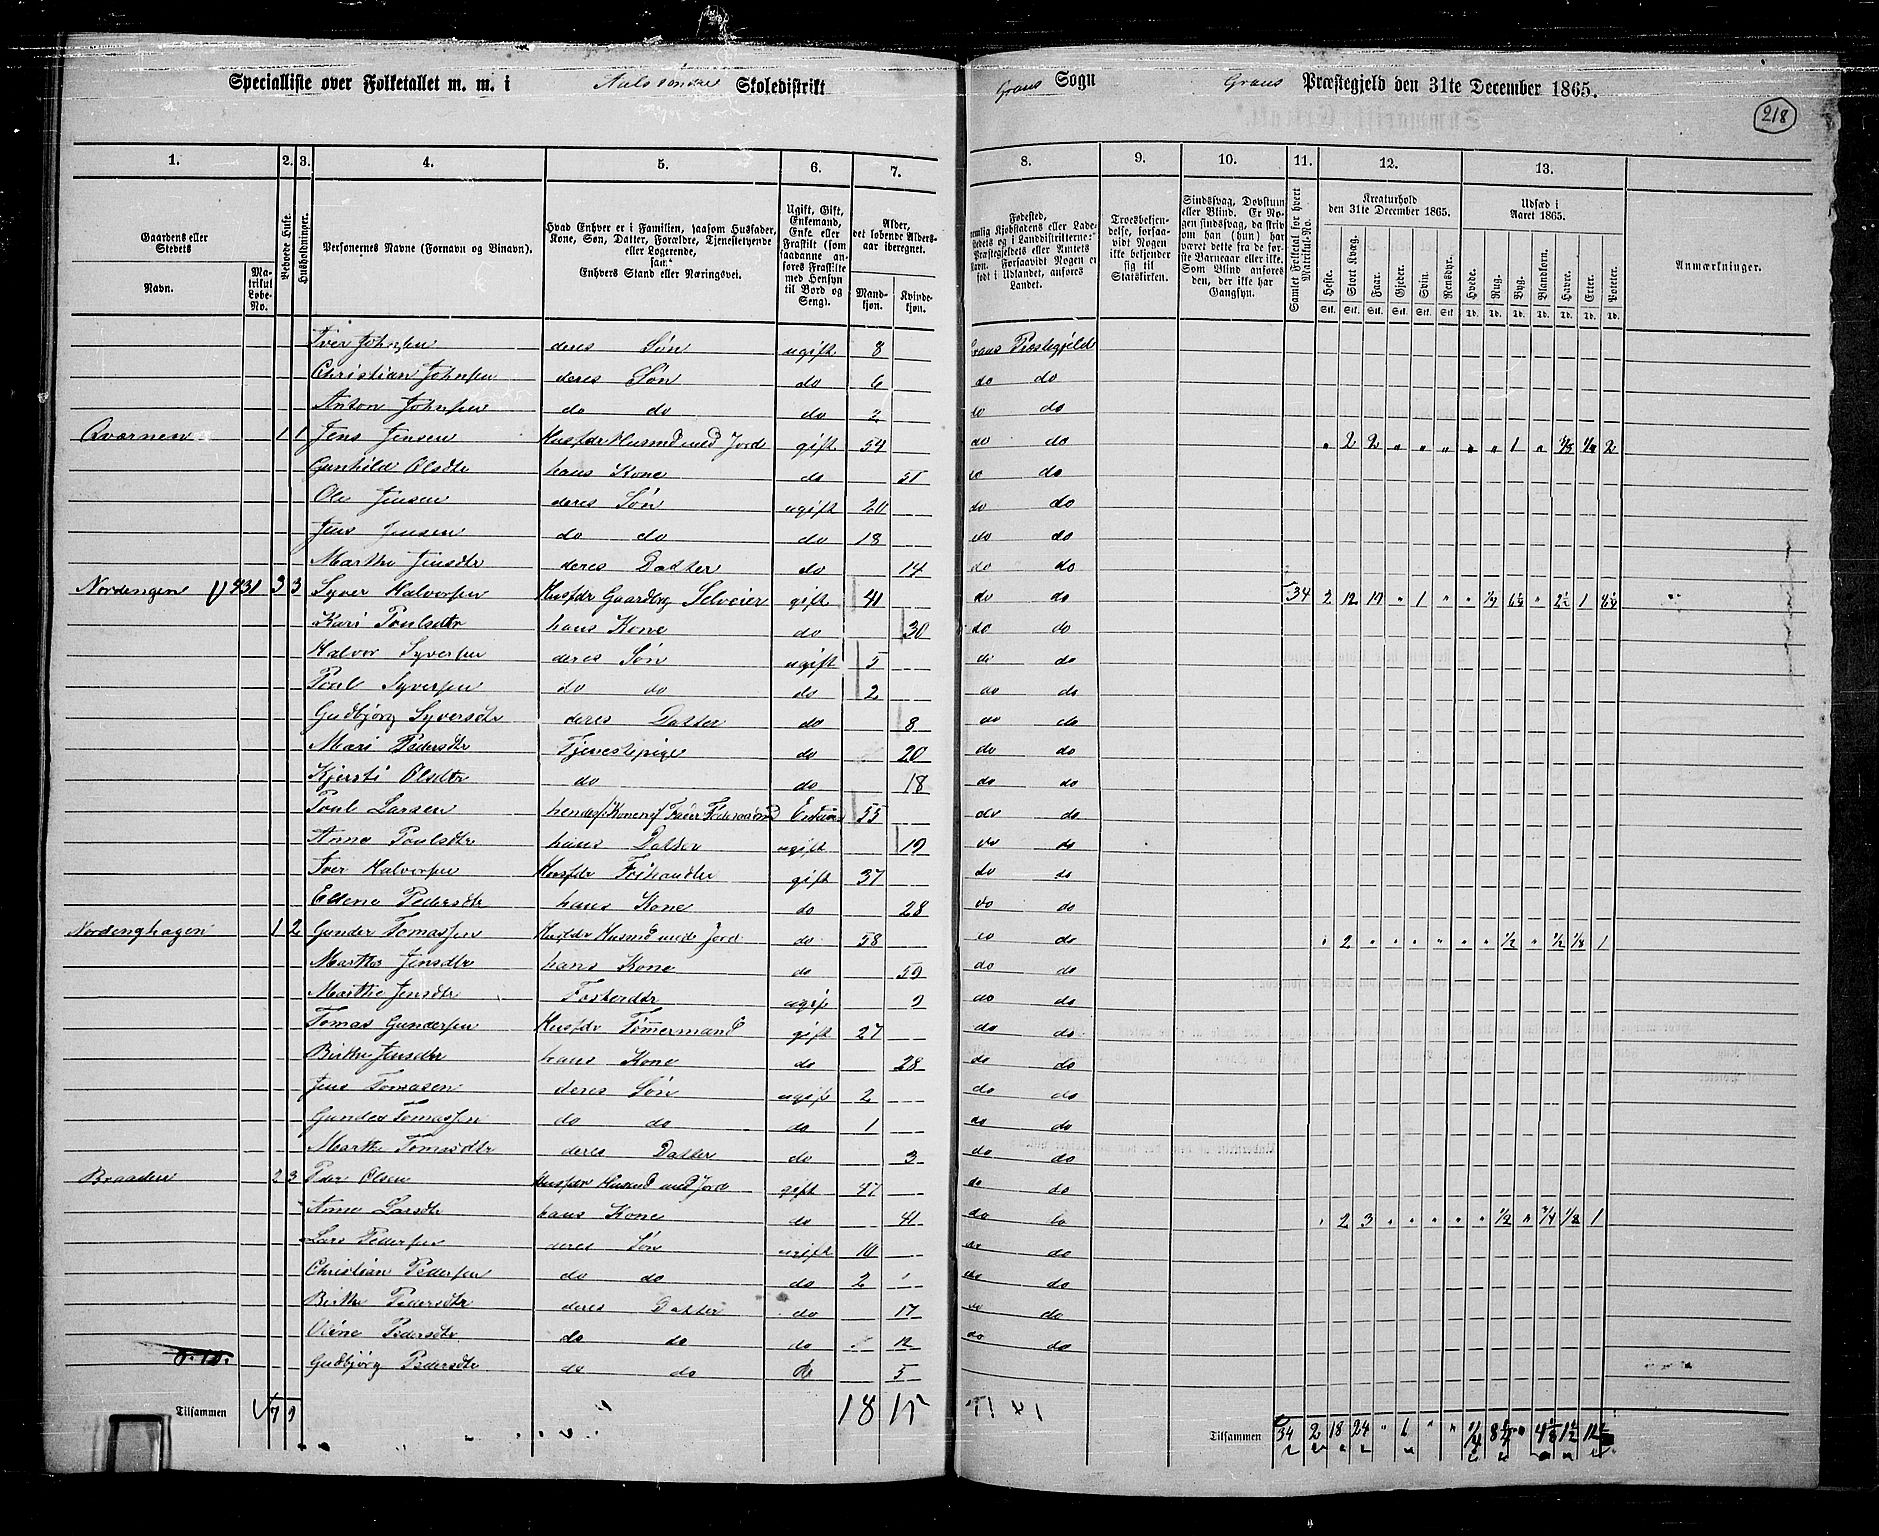 Specialliste over Folketallet m. m. i Skoledistrikt Grans Sogn Grans Præstegjeld den 31te December 1865.
218
1. 2. 3. 4. 5. 6. 7. 8. 9. 10. 11. 12. 13.
Gaardens eller Stedets Navn. Matrikul Løbe-No.
Beboede Huse.
Husholdninger.
Personernes Navne (Fornavn og Binavn).
Hvad Enhver er i Familien, saasom Husfader, Kone, Søn, Datter, Forældre, Tjenestetyende eller Logerende, samt Enhvers Stand eller Næringsvei.
Ugift, Gift, Enkemand, Enke eller Fraskilt (som saadanne anføres Fraskilte med Hensyn til Bord og Seng).
Alder, det løbende Aldersaar iberegnet. Mandkjøn. Kvindekjøn.
Fødested, nemlig Kjøbstadens eller Ladestedets og i Landdistrikterne: Præstegjeldets eller Amtets Navn. Forsaavidt Nogen er født i Udlandet, anføres Landet.
Troesbekjendelse, forsaavidt Nogen ikke bekjender sig til Statskirken.
Sindssvag, Døvstum eller Blind. Er Nogen sindssvag, da skriv om han (hun) har været dette fra de første Barneaar eller ikke. Som Blind anføres den, der ikke har Gangsyn.
Samlet Folketal for hvert Matrikul-No.
Kreaturhold den 31te December 1865. Heste. Stort Kvæg. Faar. Gjeder. Svin. Rensdyr.
Udsæd i Aaret 1865. Hvede. Rug. Byg. Blandkorn. Havre. Erter. Poteter.
Anmærkninger.
Iver Johnsen deres Søn ugift 8 Grans Præstegjeld
Christian Johnsen deres Søn do 6 do do
Anton Johnsen do do do 2 do do
Qvarnen 1 1 Jens Jensen Husfdr Husmd med Jord gift 54 do do " 2 2 " " " " " 1 " 2
Gunhild Olsdtr hans Kone do 51 do do
Ole Jensen deres Søn ugift 20 do do
Jens Jensen do do do 18 do do
Marthe Jensdtr deres Datter do 14 do do
Nordengen 431 3 3 Syver Halvorsen Husfdr Gaardbr Selveier gift 41 do do 34 2 12 19 " 1 " " 1/4 6½ " 2½ 1
Kari Poulsdtr hans Kone do 30 do do
Halvor Syversen deres Søn ugift 5 do do
Poul Syversen do do do 2 do do
Gudbjørg Syversdtr deres Datter do 8 do do
Mari Pedersdtr Tjenestepige do 20 do do
Kjersti Olsdtr do do 18 do do
Poul Larsen 55 do do
Anne Poulsdtr hans Datter ugift 19 do do
Iver Halvorsen Husfdr gift 37 do do
Eldene Pedersdtr hans Kone do 28 do do
Nordenghagen 1 2 Gunder Tomassen Husfdr Husmd med Jord do 58 do do " 2 " " " " " " 1/2 " 1/2 1/8 1
Marthe Jensdtr hans Kone do 59 do do
Marthe Jensdtr Fosterdtr ugift 9 do do
Tomas Gundersen Husfdr Tømermand gift 27 do do
Birthe Jensdtr hans Kone do 28 do do
Jens Tomasen deres Søn ugift 2 do do
Gunder Tomassen do do do 1 do do
Marthe Tomasdtr deres Datter do 3 do do
Braaden 2 3 Peder Olsen Husfdr Husmd med Jord gift 47 do do
Anne Larsdtr hans Kone do 41 do do " 2 3 " " " " " 1/2 " 3/4 1/8 1
Lars Pedersen deres Søn ugift 10 do do
Christian Pedersen do do do 2 do do
Birthe Pedersdtr deres Datter do 17 do do
Oline Pedersdtr do do do 12 do do
Gudbjørg Pedersdtr do do do 5
Tilsammen 7 9 18 15
Tilsammen 34 2 18 24 " 1 " " 1/4 8½ "